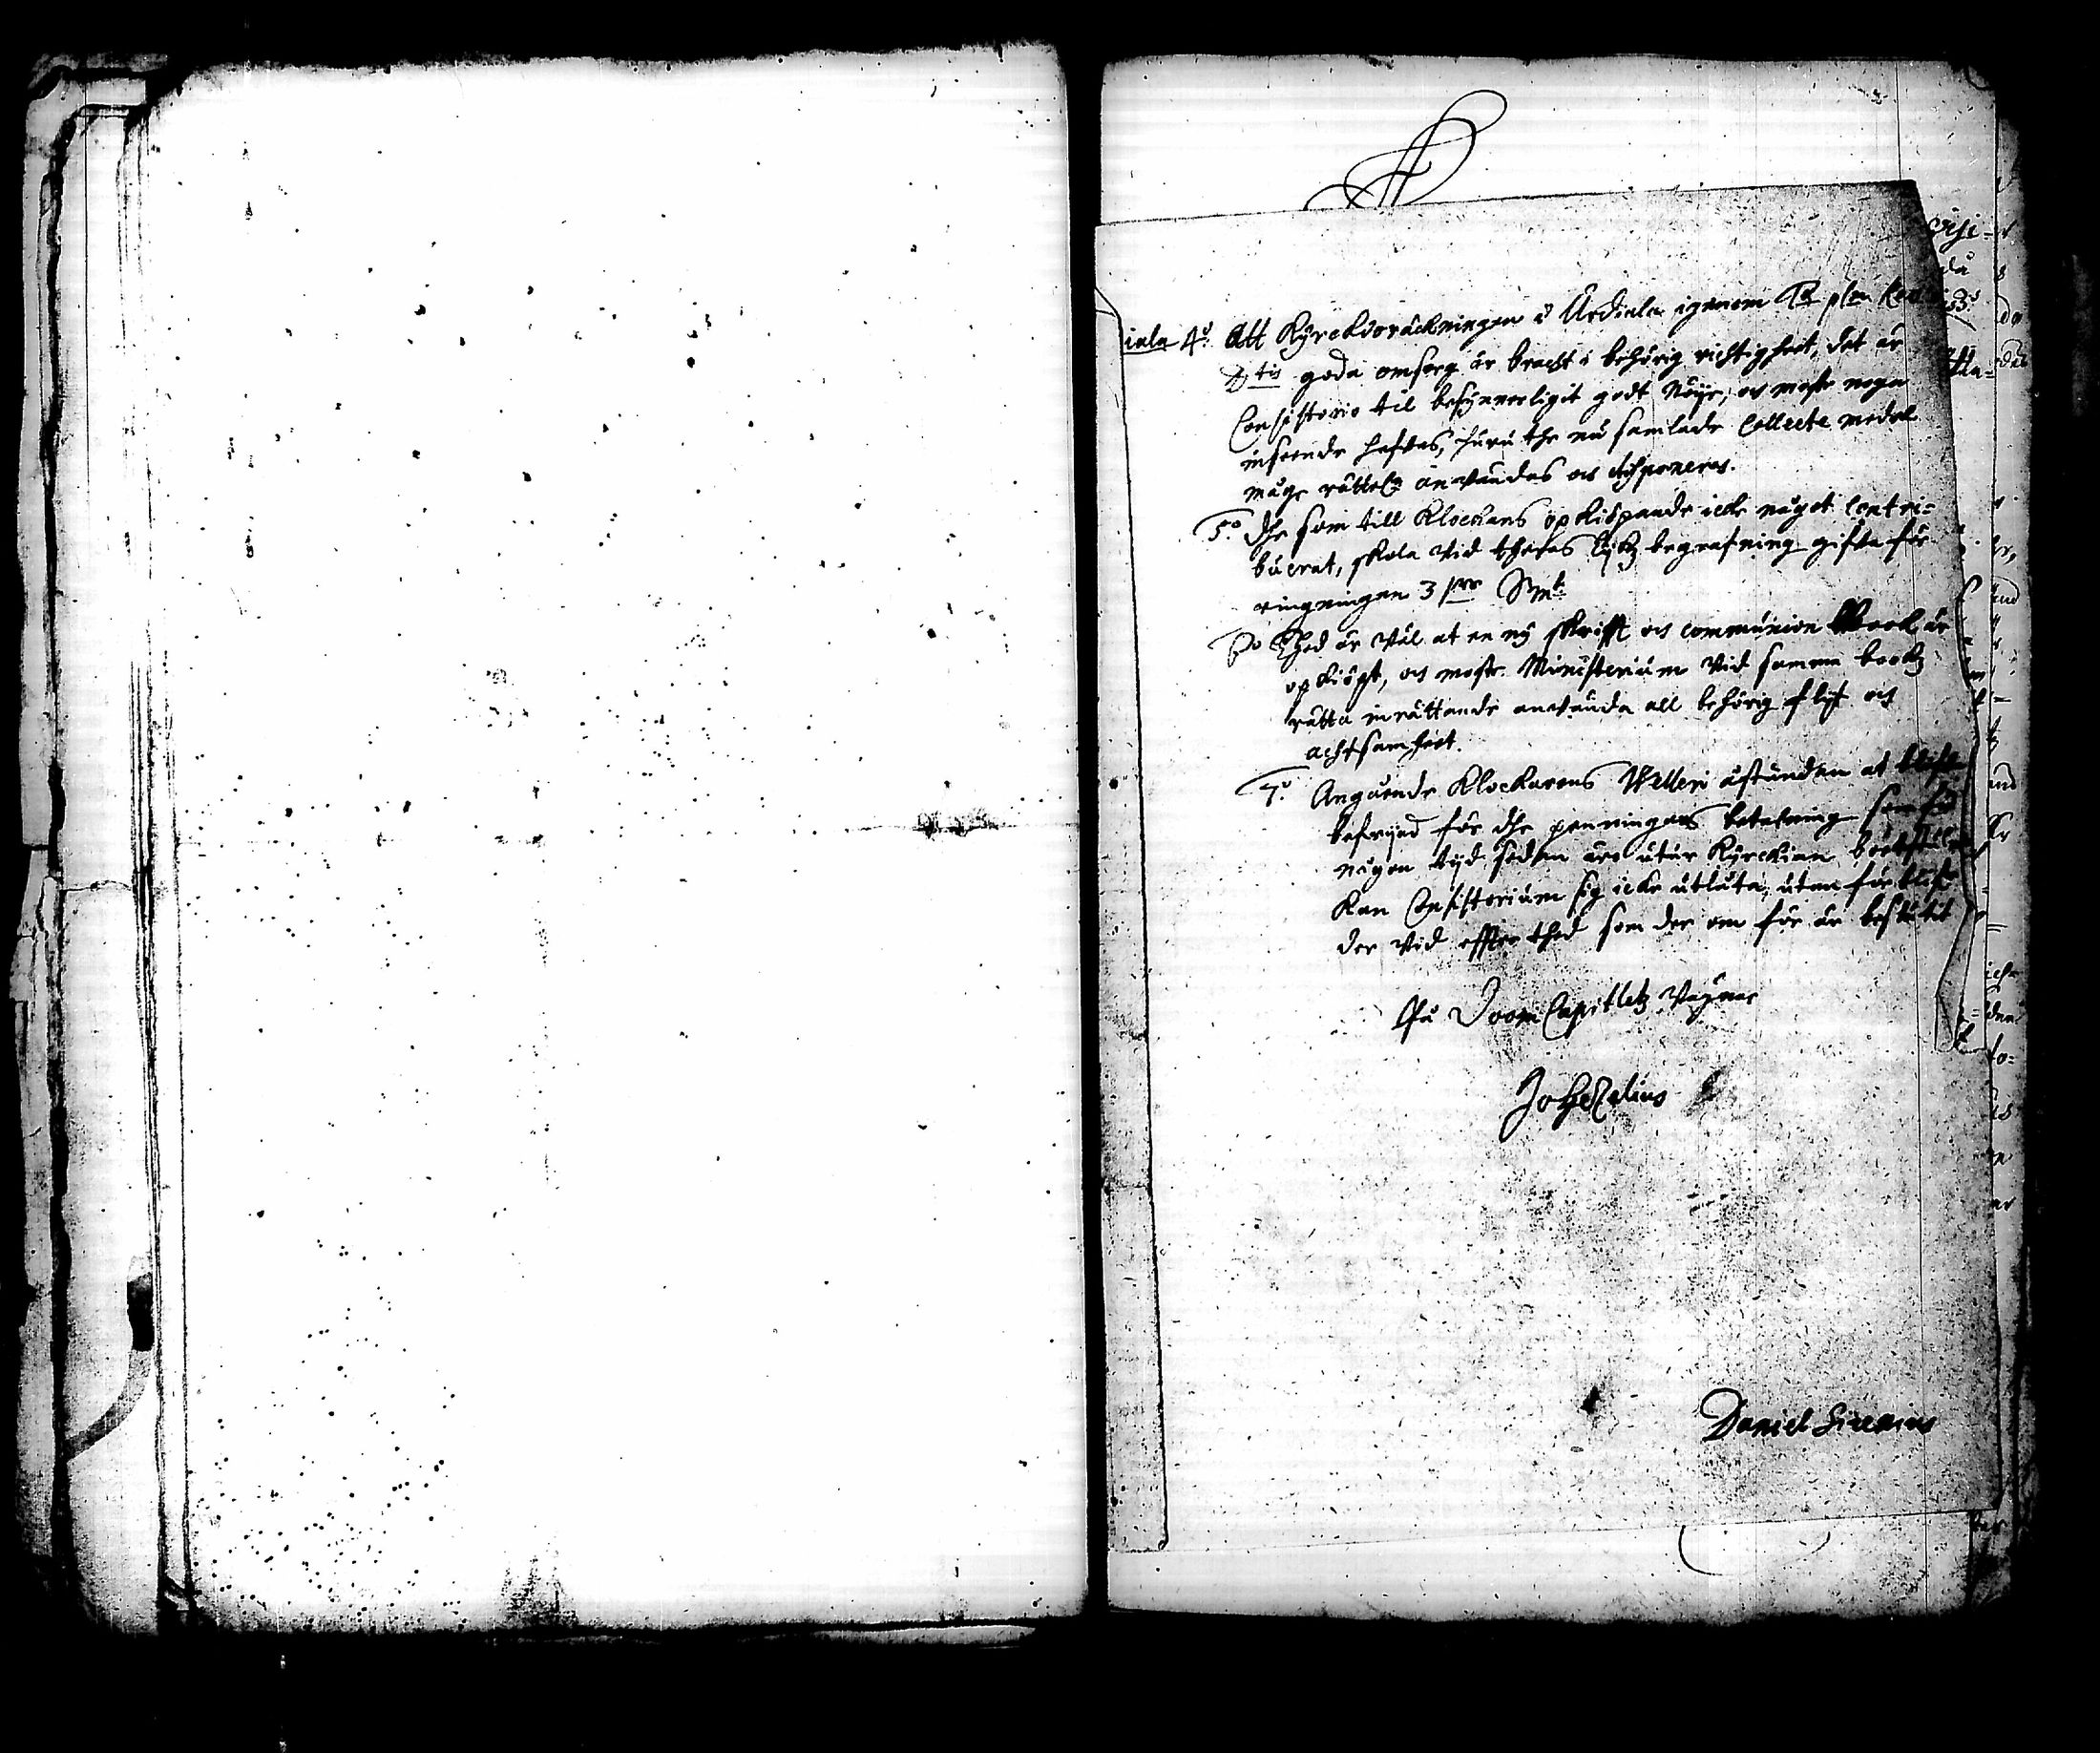 iala 4:o Att Kyrckioräckningen i Urdiala igenom
D:tis goda omsorg är bracht i behörig richtigheet, det är
Consistorio til besynnerligit godt Nöije, och moste noga
inseende hafvas, huru the nu samlade Collecte medel
måge rätteln användas och disponeras.
5:o dhe som till Klockans opkiöpande icke något contri=
buerat, skola vid theras Lijkz begrafning gifva för
ringningen 3 Sm:t
6:o Thed är väl at en ny skrifft och communion Book är
opkiöpt, och moste Ministerium vid samma bookz
rätta inrättande använda all behörig flijt och
achtsamheet.
7:o Angående Klockarens åstundan at blifva
befrijad för dhe penningars betalning som för
någon tijd sedan äro utur Kyrckian bortstulne
Kan Consistorium sig icke utlåta, utan förblifr
der vid effter thed som der om för är beslutit
På DoomCapitletz vägnar
Joh Gezelius
Daniel